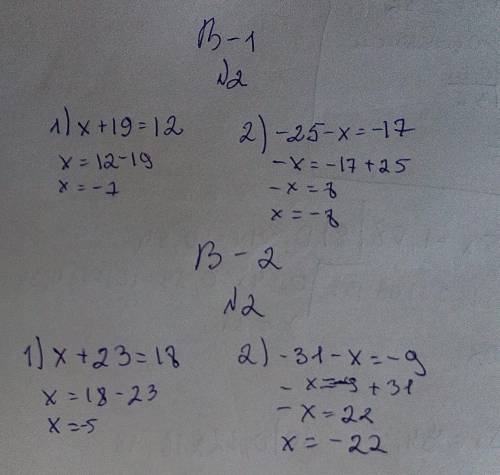 В-1
№2
1) x+19=12
x=12-19
x=-7
2) -25-x=-17
-x=-17+25
-x=8
x=-8
В-2
№2
1) x+23=18
x=18-23
x=-5
2) -31-x=-9
-x=-9+31
-x=22
x=-22